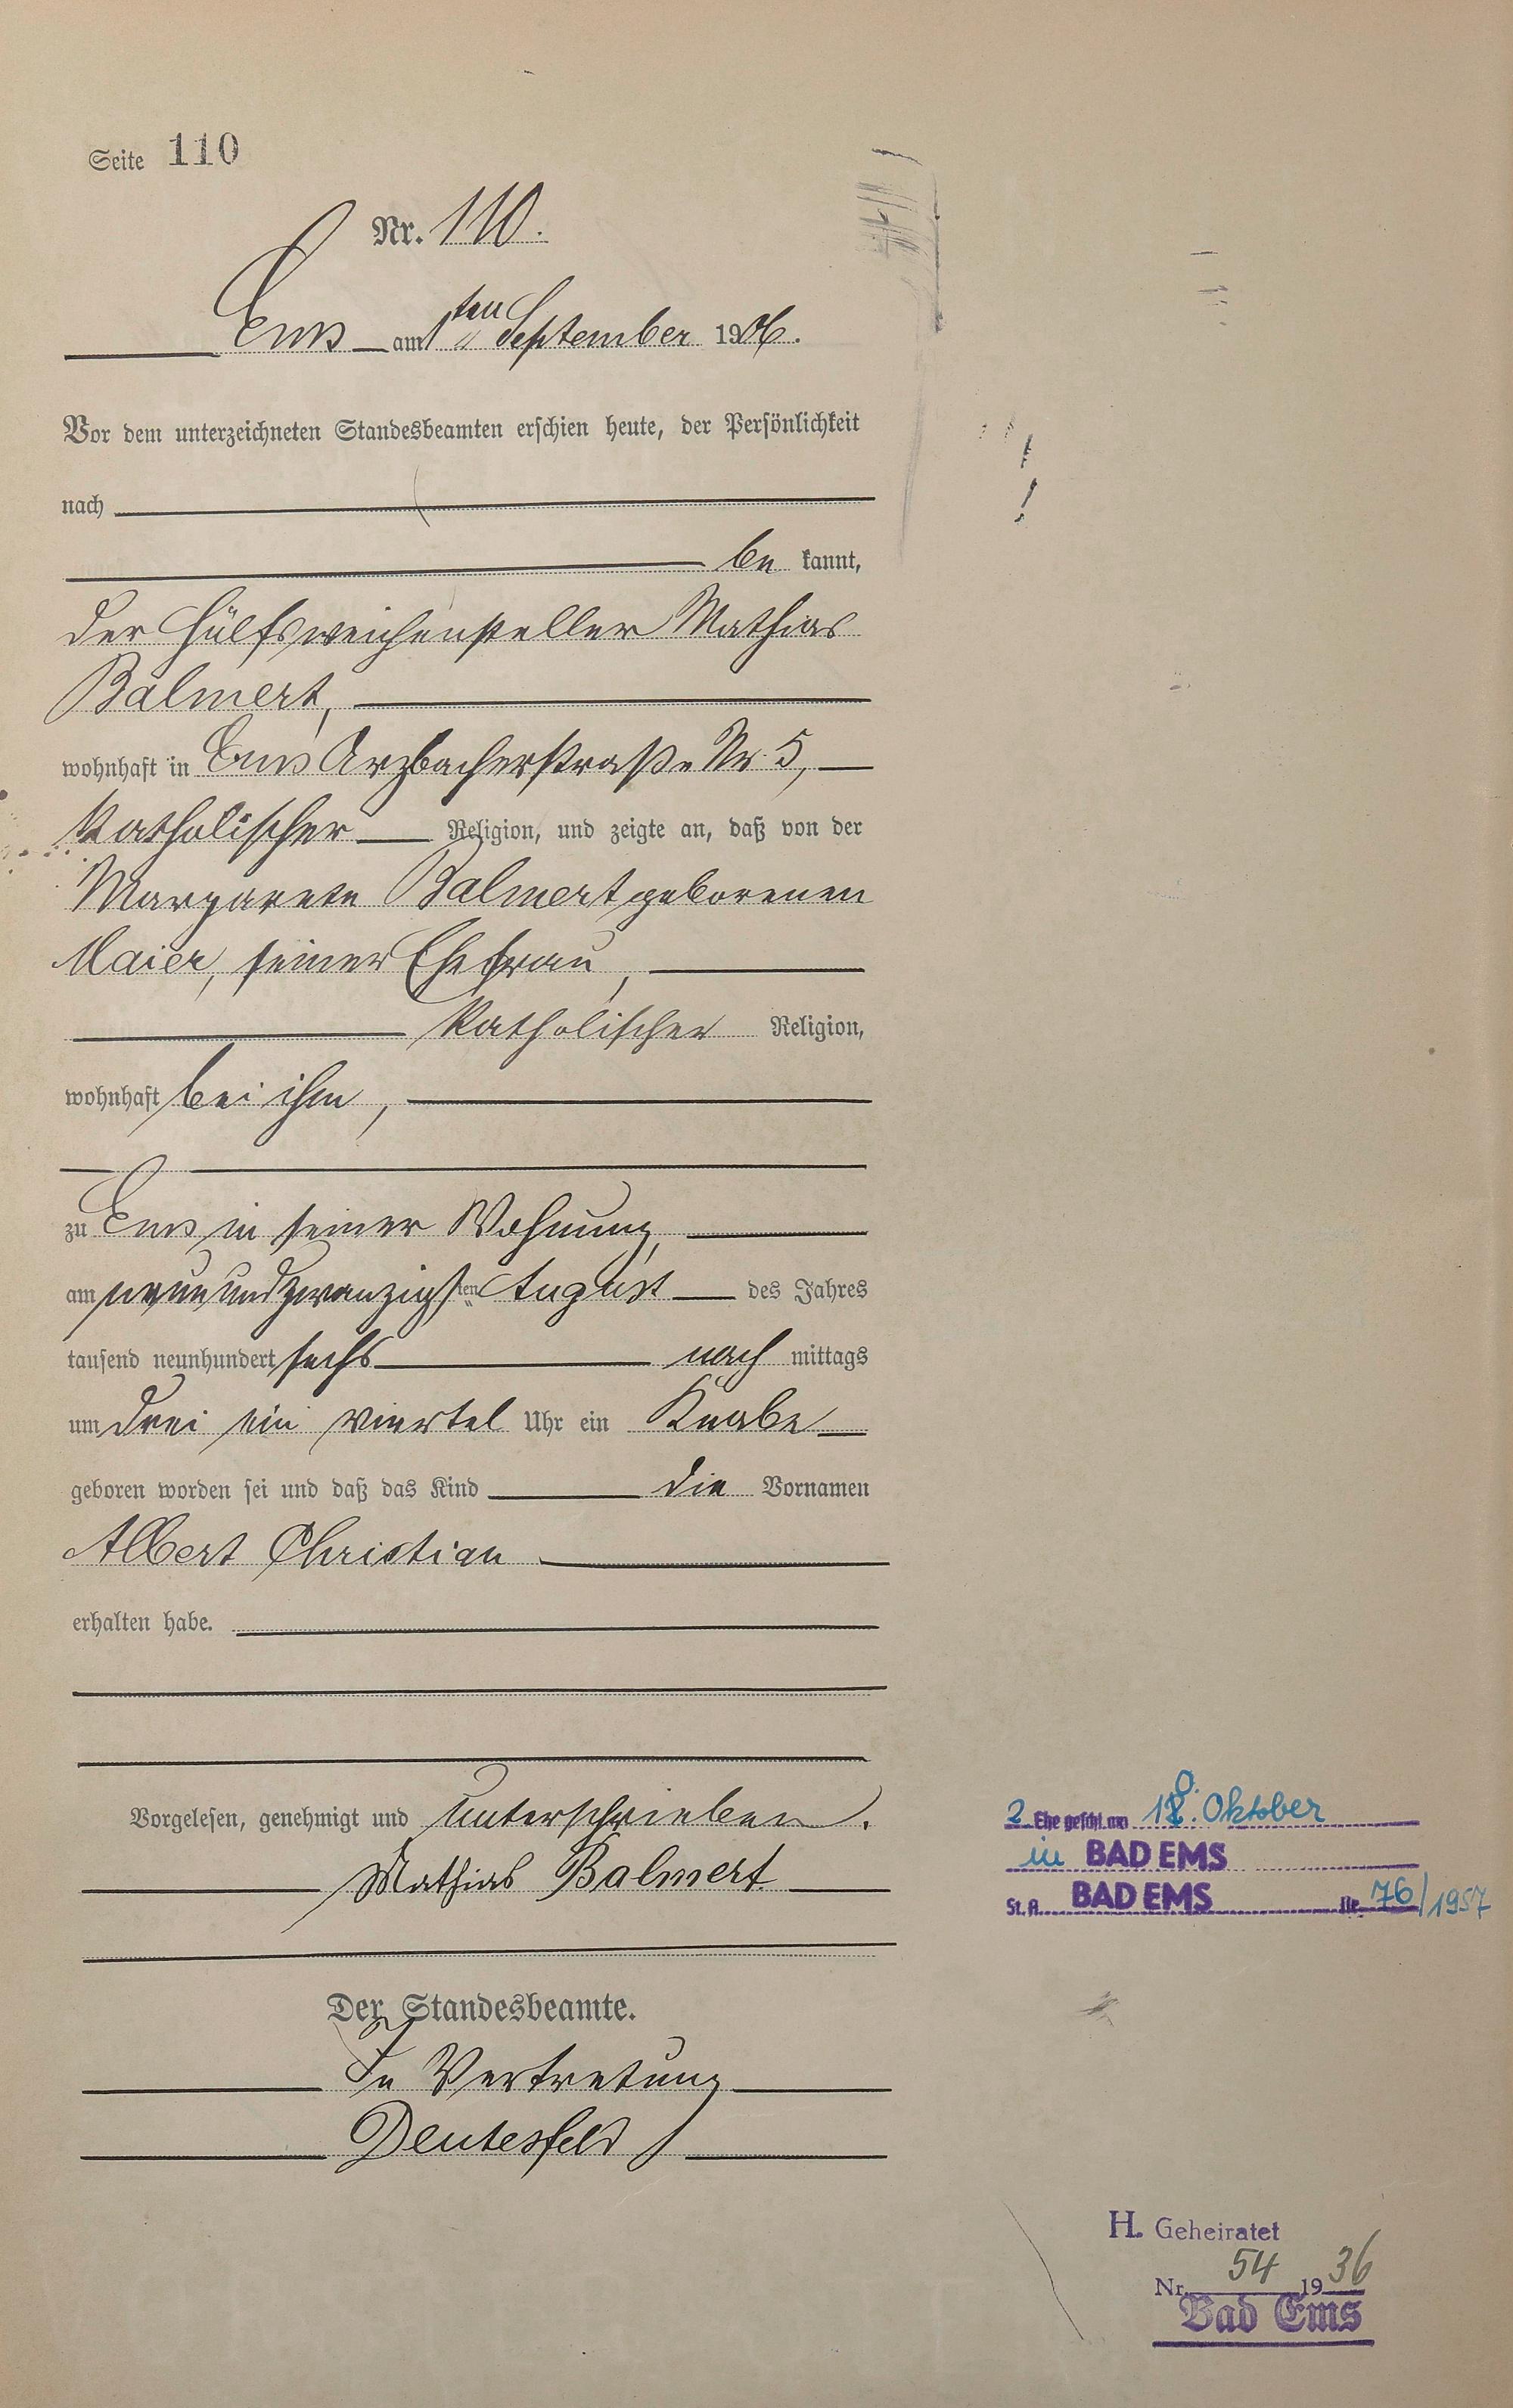 Seite 110
Nr. 110.
Ems am 1ten September 1906.
Vor dem unterzeichneten Standesbeamten erschien heute, der Persönlichkeit
nach
be kannt,
der Hülfsweichensteller Mathias
Balmert,
wohnhaft in Ems Arzbacherstraße Nr. 5,
katholischer Religion, und zeigte an, daß von der
Margarete Balmert geborenen
Maier, seiner Ehefrau,
katholischer Religion,
wohnhaft bei ihm,
zu Ems in seiner Wohnung,
am neunundzwanzigsten August des Jahres
tausend neunhundert sechs nach mittags
um drei ein viertel Uhr ein Knabe
geboren worden sei und daß das Kind die Vornamen
Albert Christian
erhalten habe.
Vorgelesen, genehmigt und unterschrieben.
Mathias Balmert
Der Standesbeamte.
In Vertretung
Deutesfeld
2. Ehe geschl. am 18. Oktober
in BAD EMS
St. A. BAD EMS Nr. 76/1957
H. Geheiratet
Nr. 54 1936
Bad Ems